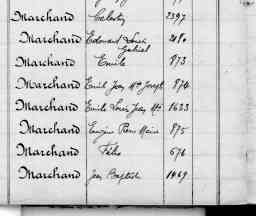 Marchand Celestin 2397
Marchand Edouard Louis
Gabriel 2180
Marchand Emile 873
Marchand Emile Jean Mie Joseph 874
Marchand Emile Louis Jean Mie 1633
Marchand Eugène Pierre Marie 875
Marchand Félix 676
Marchand Jean Baptiste 1469